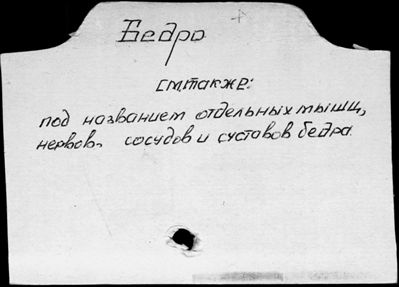 Бедро
см.также:
под названием отдельных мышц,
нервов, сосудов и суставов бедра.